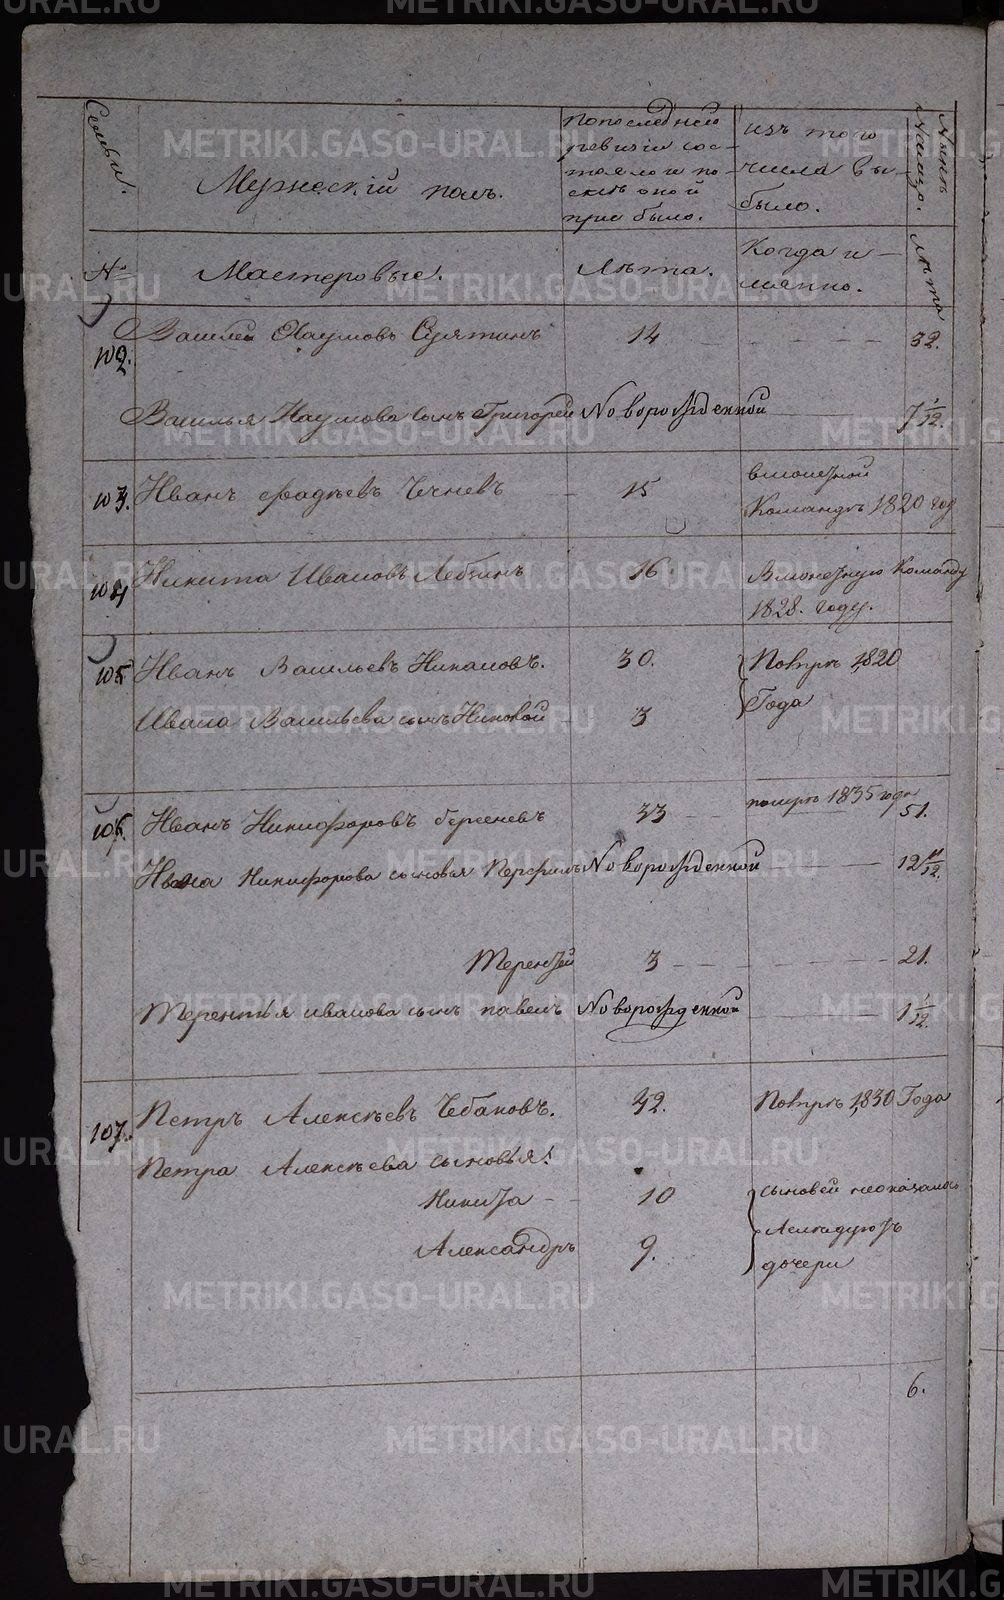 Семьи.
Мужескій полъ.
По последней
ревизіи сос-
тояло и по-
слѣ оной
прибыло.
изъ того
числа вы-
было.
Нынѣ
На лицо.
№
Мастеровые.
Лѣта.
Когда и-
мянно.
Лѣта
102. Василей Наумовъ Сулятинъ 14 32.
Василья Наумова сынъ Григорей Новорожденной 7 1/12.
103. Иванъ Фадѣевъ 15
Командѣ 1820 год
104 Никита Ивановъ 16. команду
1828. году.
105 Иванъ Васильевъ 30. 1820
Ивана Васильева сынъ 3 Года
106. Иванъ Никифоровъ 33 помре 1835 года 51.
Ивана Никифорова сыновья Перфилъ Новорожденной 12 11/12.
Терентей 3 21.
Терентья иванова сынъ павелъ Новорожденной 1 1/12.
107. Петръ Алексѣевъ Чебаковъ. 42. 1830 Года
Петра Алексѣева сыновья:
Никита 10 сыновей неоказалось
Александръ 9.
дочери
6.
METRIKI.GASO-URAL.RU